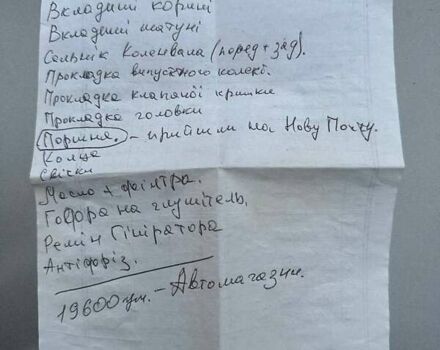 Вкладиші корині
Вкладиші шатуні
Сальнік Коленвала (перед + зад).
Прокладка випускного колекі.
Прокладка клапаної кришки
Прокладка головки
Поршня. - прийшли на Нову Почту.
Колца
Свічки
Масло + фільтра.
Гофра на глушітель.
Ремін Гініратора
Антіфріз.
19600 грн. - Автомагазин.